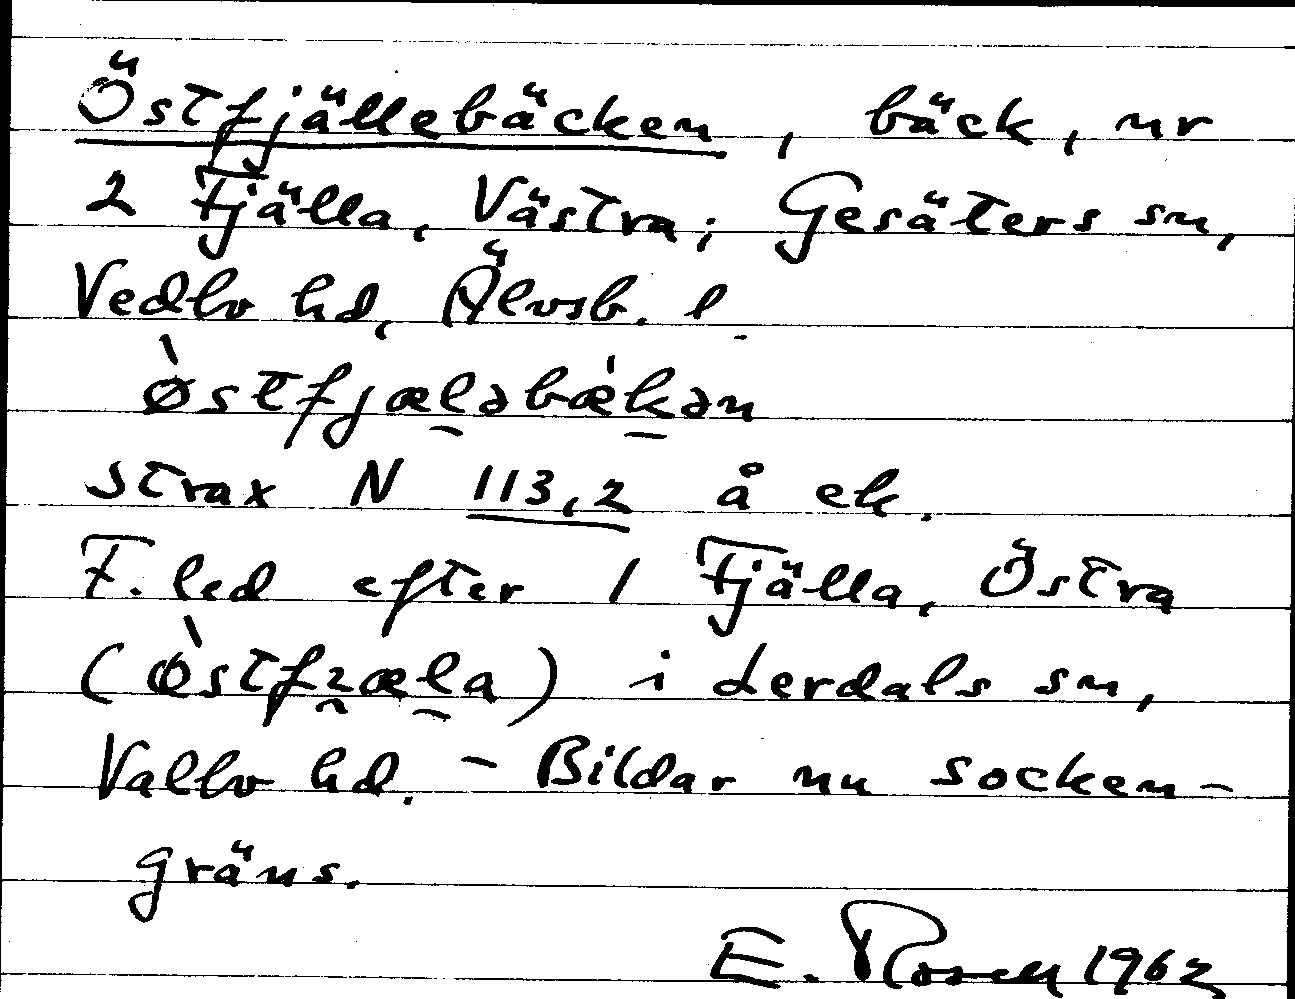 Östfjällebäcken, bäck, nr
2 Fjälla, Västra; Gesäters sn,
Vedbo hd, Älvsb. l
ø̀stfjæl̠əbæ̍k̠ən
strax N 113,2 å ek.
F.led efter 1 Fjälla, Östra
(ø̀stfȷæl̠a) i Lerdals sn,
Valbo hd. - Bildar nu socken-
gräns.
E. Rosell 1962